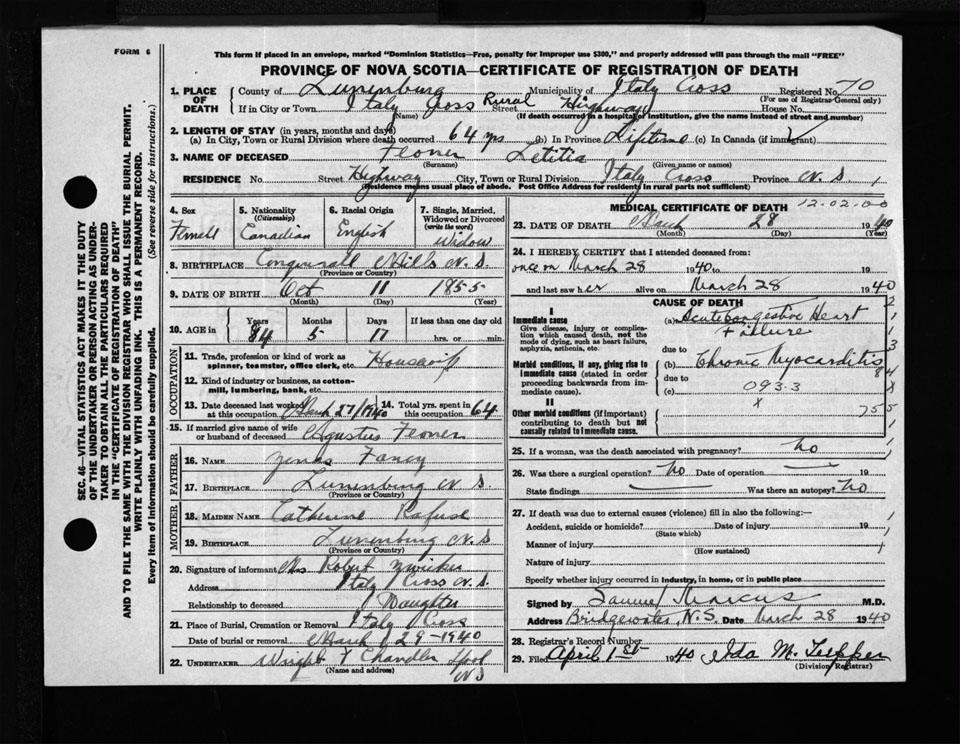 FORM 6
This form if placed in an envelope, marked "Dominion Statistics—Free, penalty for improper use $300," and properly addressed will pass through the mail "FREE"
PROVINCE OF NOVA SCOTIA—CERTIFICATE OF REGISTRATION OF DEATH
SEC. 46—VITAL STATISTICS ACT MAKES IT THE DUTY
OF THE UNDERTAKER OR PERSON ACTING AS UNDER-
TAKER TO OBTAIN ALL THE PARTICULARS REQUIRED
IN THE "CERTIFICATE OF REGISTRATION OF DEATH"
AND TO FILE THE SAME WITH THE DIVISION REGISTRAR WHO SHALL ISSUE THE BURIAL PERMIT.
WRITE PLAINLY WITH UNFADING INK. THIS IS A PERMANENT RECORD.
Every item of information should be carefully supplied. (See reverse side for instructions.)
1. PLACE OF DEATH County of Lunenburg Municipality of Italy Cross Registered No. 70
(For use of Registrar General only)
If in City or Town Italy Cross Rural Street Highway House No.
(Name) (If death occurred in a hospital or institution, give the name instead of street and number)
2. LENGTH OF STAY (in years, months and days)
(a) In City, Town or Rural Division where death occurred 64 yrs (b) In Province Liftime (c) In Canada (if immigrant)
3. NAME OF DECEASED Letitia
(Surname) (Given name or names)
RESIDENCE No. Street Highway City, Town or Rural Division Italy Cross Province N.S.
(Residence means usual place of abode. Post Office Address for residents in rural parts not sufficient)
4. Sex 5. Nationality (Citizenship) 6. Racial Origin 7. Single, Married, Widowed or Divorced (write the word)
Canadian English Widow
8. BIRTHPLACE Mills N.S.
(Province or Country)
9. DATE OF BIRTH Oct 11 1855
(Month) (Day) (Year)
10. AGE in Years Months Days If less than one day old
84 5 17 hrs. or min.
OCCUPATION
11. Trade, profession or kind of work as
spinner, teamster, office clerk, etc.
12. Kind of industry or business, as cotton-
mill, lumbering, bank, etc.
13. Date deceased last worked at this occupation March 27/1940 14. Total yrs. spent in this occupation 64
15. If married give name of wife
or husband of deceased
FATHER
16. NAME Fancy
17. BIRTHPLACE Lunenburg N.S.
(Province or Country)
MOTHER
18. MAIDEN NAME Catherine Rafuse
19. BIRTHPLACE Lunenburg N.S
(Province or Country)
20. Signature of informant Mrs Robert Zwicker
Address Italy Cross N.S.
Relationship to deceased Daughter
21. Place of Burial, Cremation or Removal Italy Cross
Date of burial or removal March 29-1940
22. UNDERTAKER Chandler Lpool
NS
(Name and address)
MEDICAL CERTIFICATE OF DEATH 12.02.00
23. DATE OF DEATH March 28 1940
(Month) (Day) (Year)
24. I HEREBY CERTIFY that I attended deceased from:
once on March 28 1940 to 19
and last saw her alive on March 28 1940
CAUSE OF DEATH
I
Immediate cause (a) Acute Congestive Heart
Failure
Give disease, injury or complica-
tion which caused death, not the
mode of dying, such as heart failure,
asphyxia, asthenia, etc.
due to
Morbid conditions, if any, giving rise to
immediate cause (stated in order
proceeding backwards from im-
mediate cause).
(b) Chronic Myocarditis
due to
(c) 093.3
II
Other morbid conditions (if important)
contributing to death but not
causally related to immediate cause.
25. If a woman, was the death associated with pregnancy? No 19
26. Was there a surgical operation? No Date of operation 19
State findings Was there an autopsy? No
27. If death was due to external causes (violence) fill in also the following:—
Accident, suicide or homicide? Date of injury 19
(State which)
Manner of injury
(How sustained)
Nature of injury
Specify whether injury occurred in industry, in home, or in public place
Signed by Samuel Marcus M.D.
Address Bridgewater, N.S. Date March 28 1940
28. Registrar's Record Number
29. Filed April 1st 1940 Ida M. Tupper
(Division Registrar)